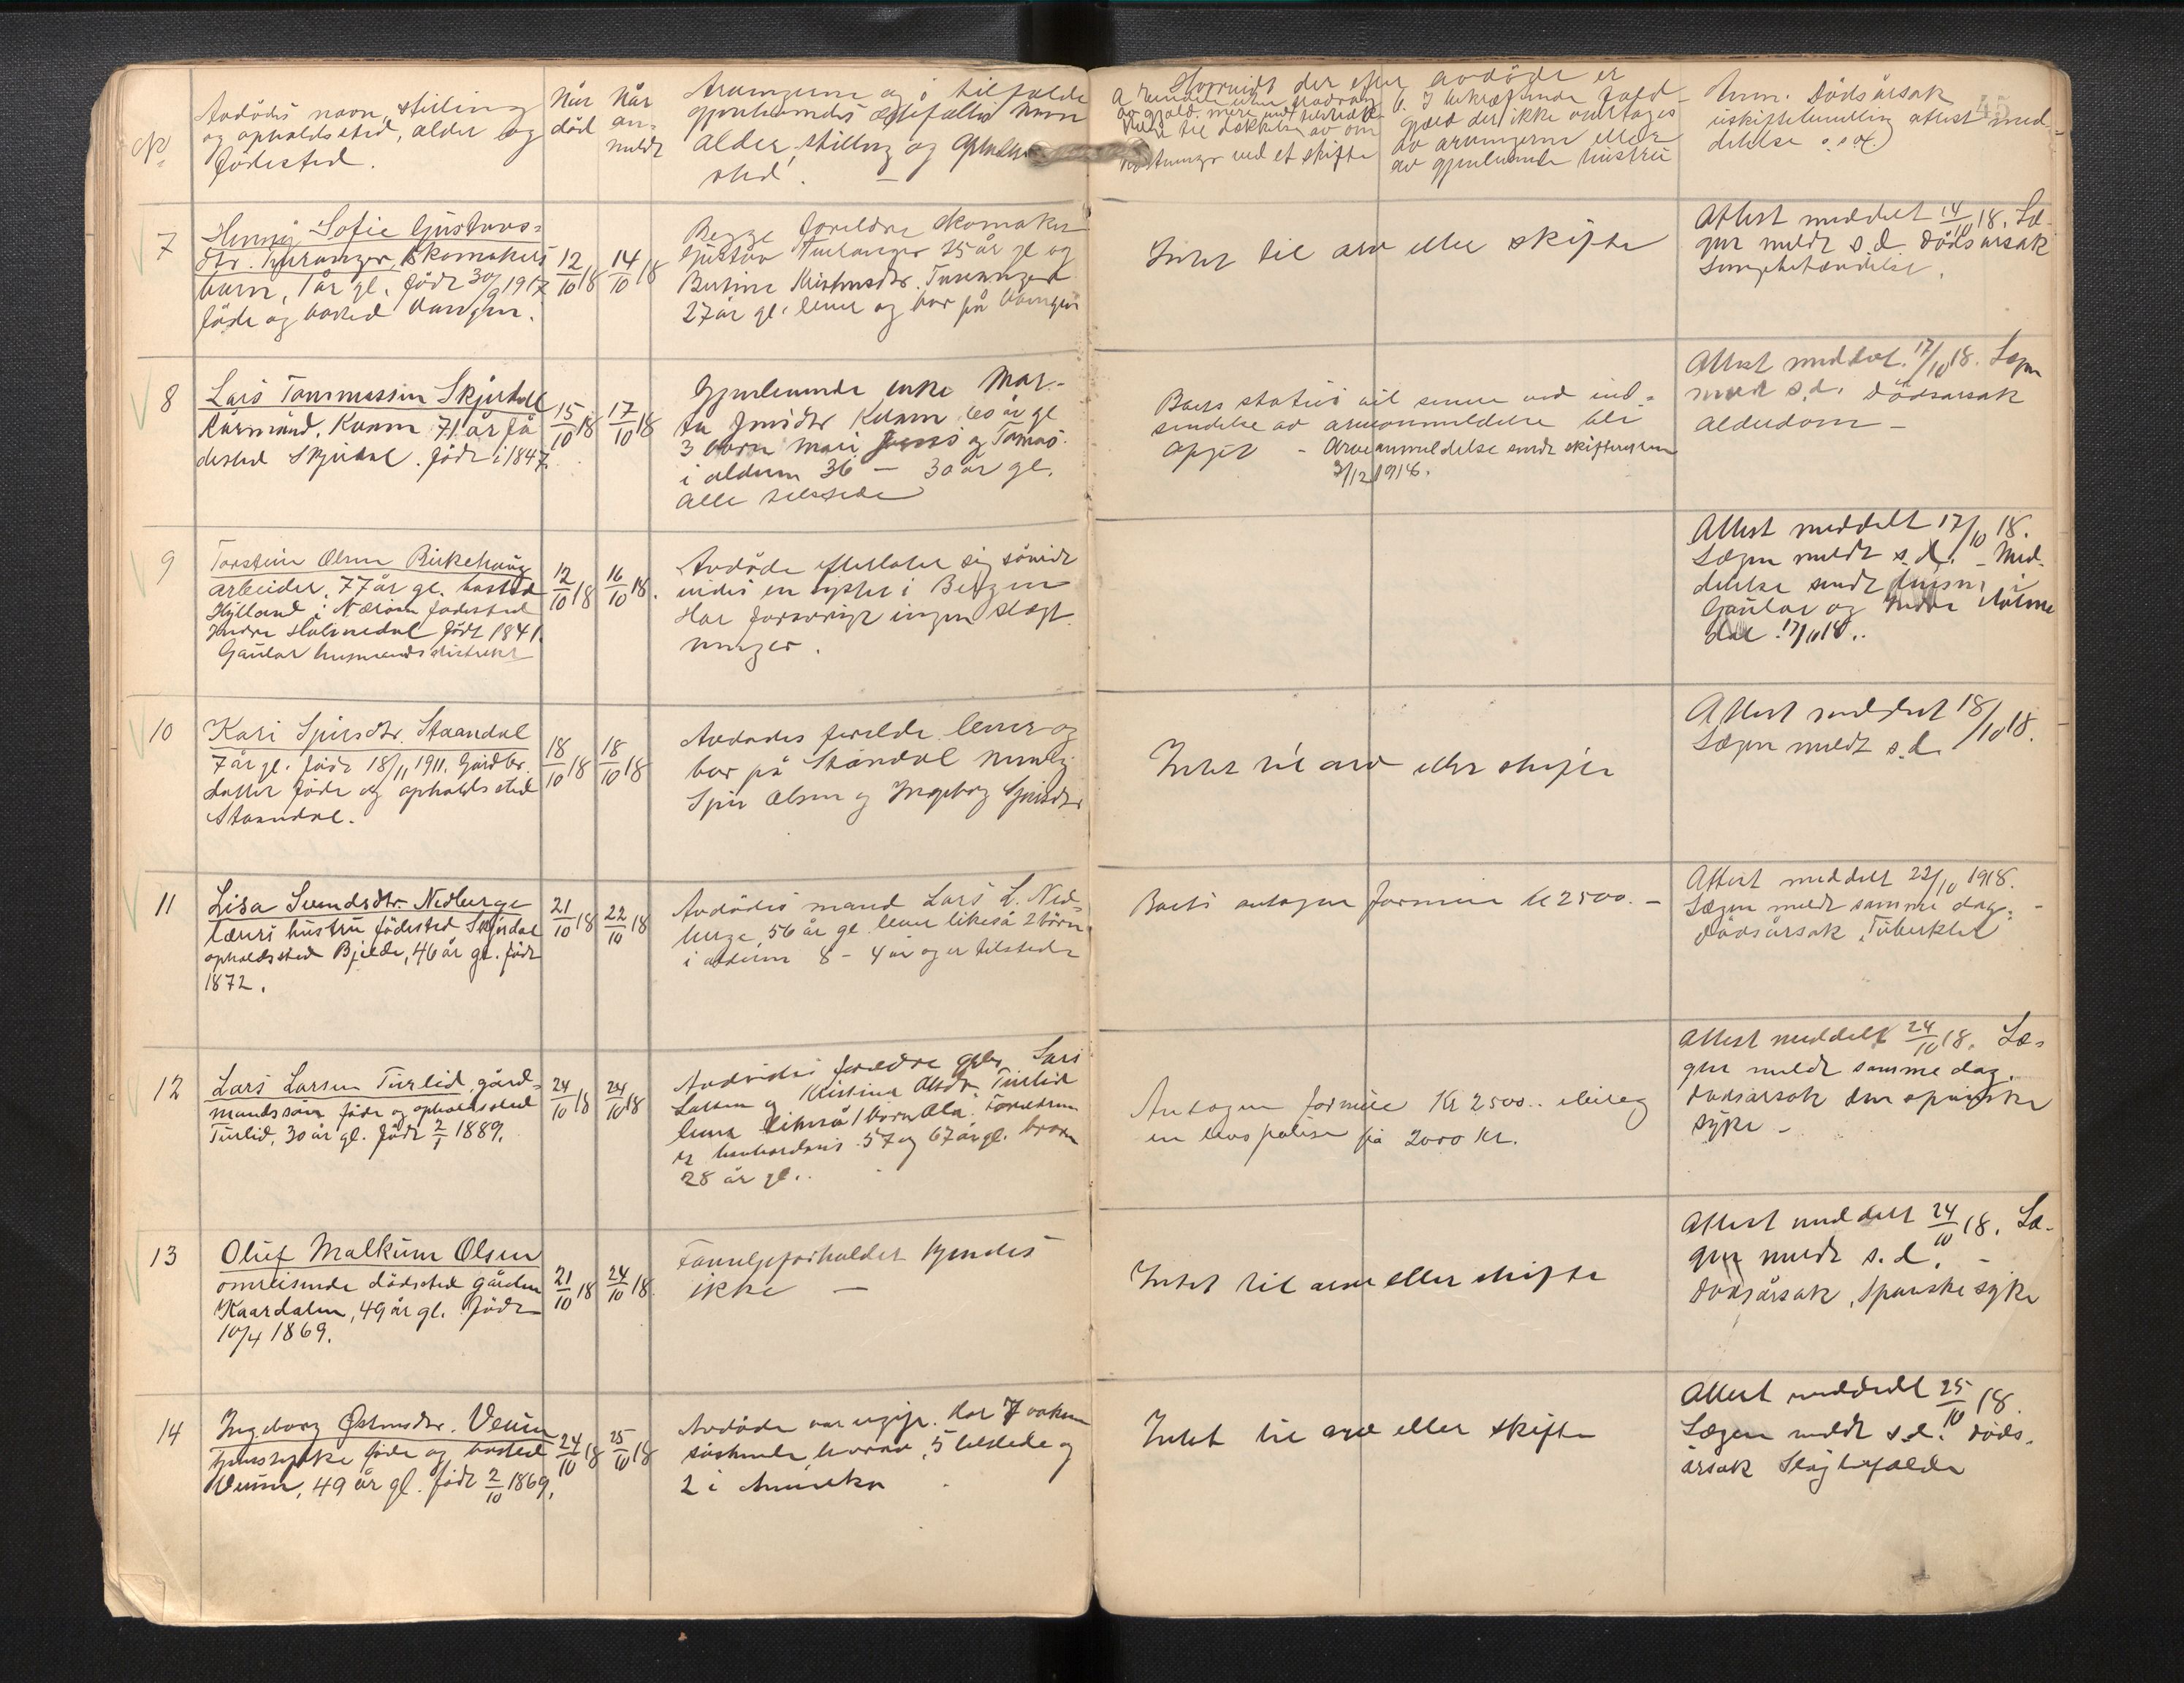 45
No
Avdödes navn, stilling
og opholdssted, alder og
födested.
Når
död
Når
an-
meldt
Arvingerne og i tilfælde
gjenlevendes ektefælles navn
alder, stilling og opholds-
sted.
Hvorvidt der efter avdöde er
b. I bekræftende fald
gjæld der ikke overtages
av arvingerne eller
av gjenlevende hustru
Anm. Dödsårsak
uskiftebevilling attest med-
delelse o.s.v.)
7
Henny Sofie Gustavs-
dtr. Turanger, skomakers
barn, 1 år gl. födt 30/9 1917
föde og bosted Vangen.
12/10 18
14/10 18
Begge forældre skomaker
Gustav Turanger 25 år gl og
Bertine Kristensdtr. Turanger
27 år gl. lever og bor på Vangen
Intet til arv eller skifte
Attest meddelt 14/10 18. Læ-
gen meldt s d Dödsårsak
Lungebetændelse.
8
Lars Tommessen Skjerdal
Kårmand, Kvam 71 år fö-
dested Skjerdal. födt i 1847.
15/10 18
17/10 18
Gjenlevende enke Mar-
ta Jensdtr Kvam 60 år gl
3 barn Mari Jens og Tomas
i alderen 36 – 30 år gl.
alle tilstede
Boets status vil senere ved ind-
sendelse av arveanmeldelse bli
opgit – Arveanmeldelse sendt skifteretten
3/12 1918.
Attest meddelt 17/10 18. Lægen
meldt s.d. Dödsårsak
Alderdom –
9
Torstein Olsen Birkehaug
arbeider, 77 år gl. bosted
Hylland i Næröen födested
Indre Holmedal födt 1841.
Gaular lensmandsdistrikt
12/10 18
16/10 18.
Avdöde efterlater sig såvidt
vides en syster i Bergen
Har forövrigt ingen slægt-
ninger.
Attest meddelt 17/10 18.
Lægen meldt s.d. – Med-
delelse sendt lensm. i
Gaular og Indre Holme
dal 17/10 18.
10
Kari Sjursdtr. Staandal
7 år gl. födt 18/11 1911. Gårdbr.
datter föde og opholdssted
Staandal.
18/10 18
18/10 18
Avdödes forældre lever og
bor på Ståndal nemlig
Sjur Olsen og Ingeborg Sjursdtr
Intet til arv eller skifte
Attest meddelt 18/10 18.
Lægen meldt s.d.
11
Lisa Svendsdtr. Nedberge
lærers hustru födested Skjerdal
opholdssted Bjelde, 46 år gl. födt
1872.
21/10 18
22/10 18
Avdödes mand Lars L. Ned-
berge, 56 år gl. lever likeså 2 börn
i alderen 8 – 4 år og er tilstede
Boets antagen formue kr 2500. –
Attest meddelt 22/10 1918.
Lægen meldt samme dag. –
Dödsårsak, Tuberklos
12
Lars Larsen Turlid, gård-
mandssön föde og opholdssted
Turlid, 30 år gl. födt 2/1 1889.
24/10 18
24/10 18
Avdödes forældre gbr. Lars
Larsen og Kristina Olsdr. Turlid
lever likeså 1 bror Ola. Forældrene
er henholdsvis 57 og 67 år gl. broren
28 år gl.
Antagen formue Kr 2500.. likeså
en livspolise på 2000 Kr.
Attest meddelt 24/10 18. Læ-
gen meldt samme dag.
Dödsårsak den spanske
syke –
13
Oluf Malkum Olsen
omreisende dödssted gården
Kaardalen, 49 år gl. födt
10/4 1869.
21/10 18
24/10 18.
Familjeforholdet kjendes
ikke –
Intet til arv eller skifte
Attest meddelt 24/10 18. Læ-
gen meldt s.d. –
Dödsårsak, Spanske syke
14
Ingeborg Östensdtr. Veum
föde og bosted
Veum, 49 år gl. födt 2/10 1869.
24/10 18
25/10 18
Avdöde var ugift. Har 7 voksne
söskende hvorav 5 tilstede og
2 i Amerika
Intet til arv eller skifte
Attest meddelt 25/10 18.
Lægen meldt s.d. Döds-
årsak Slagtilfælde